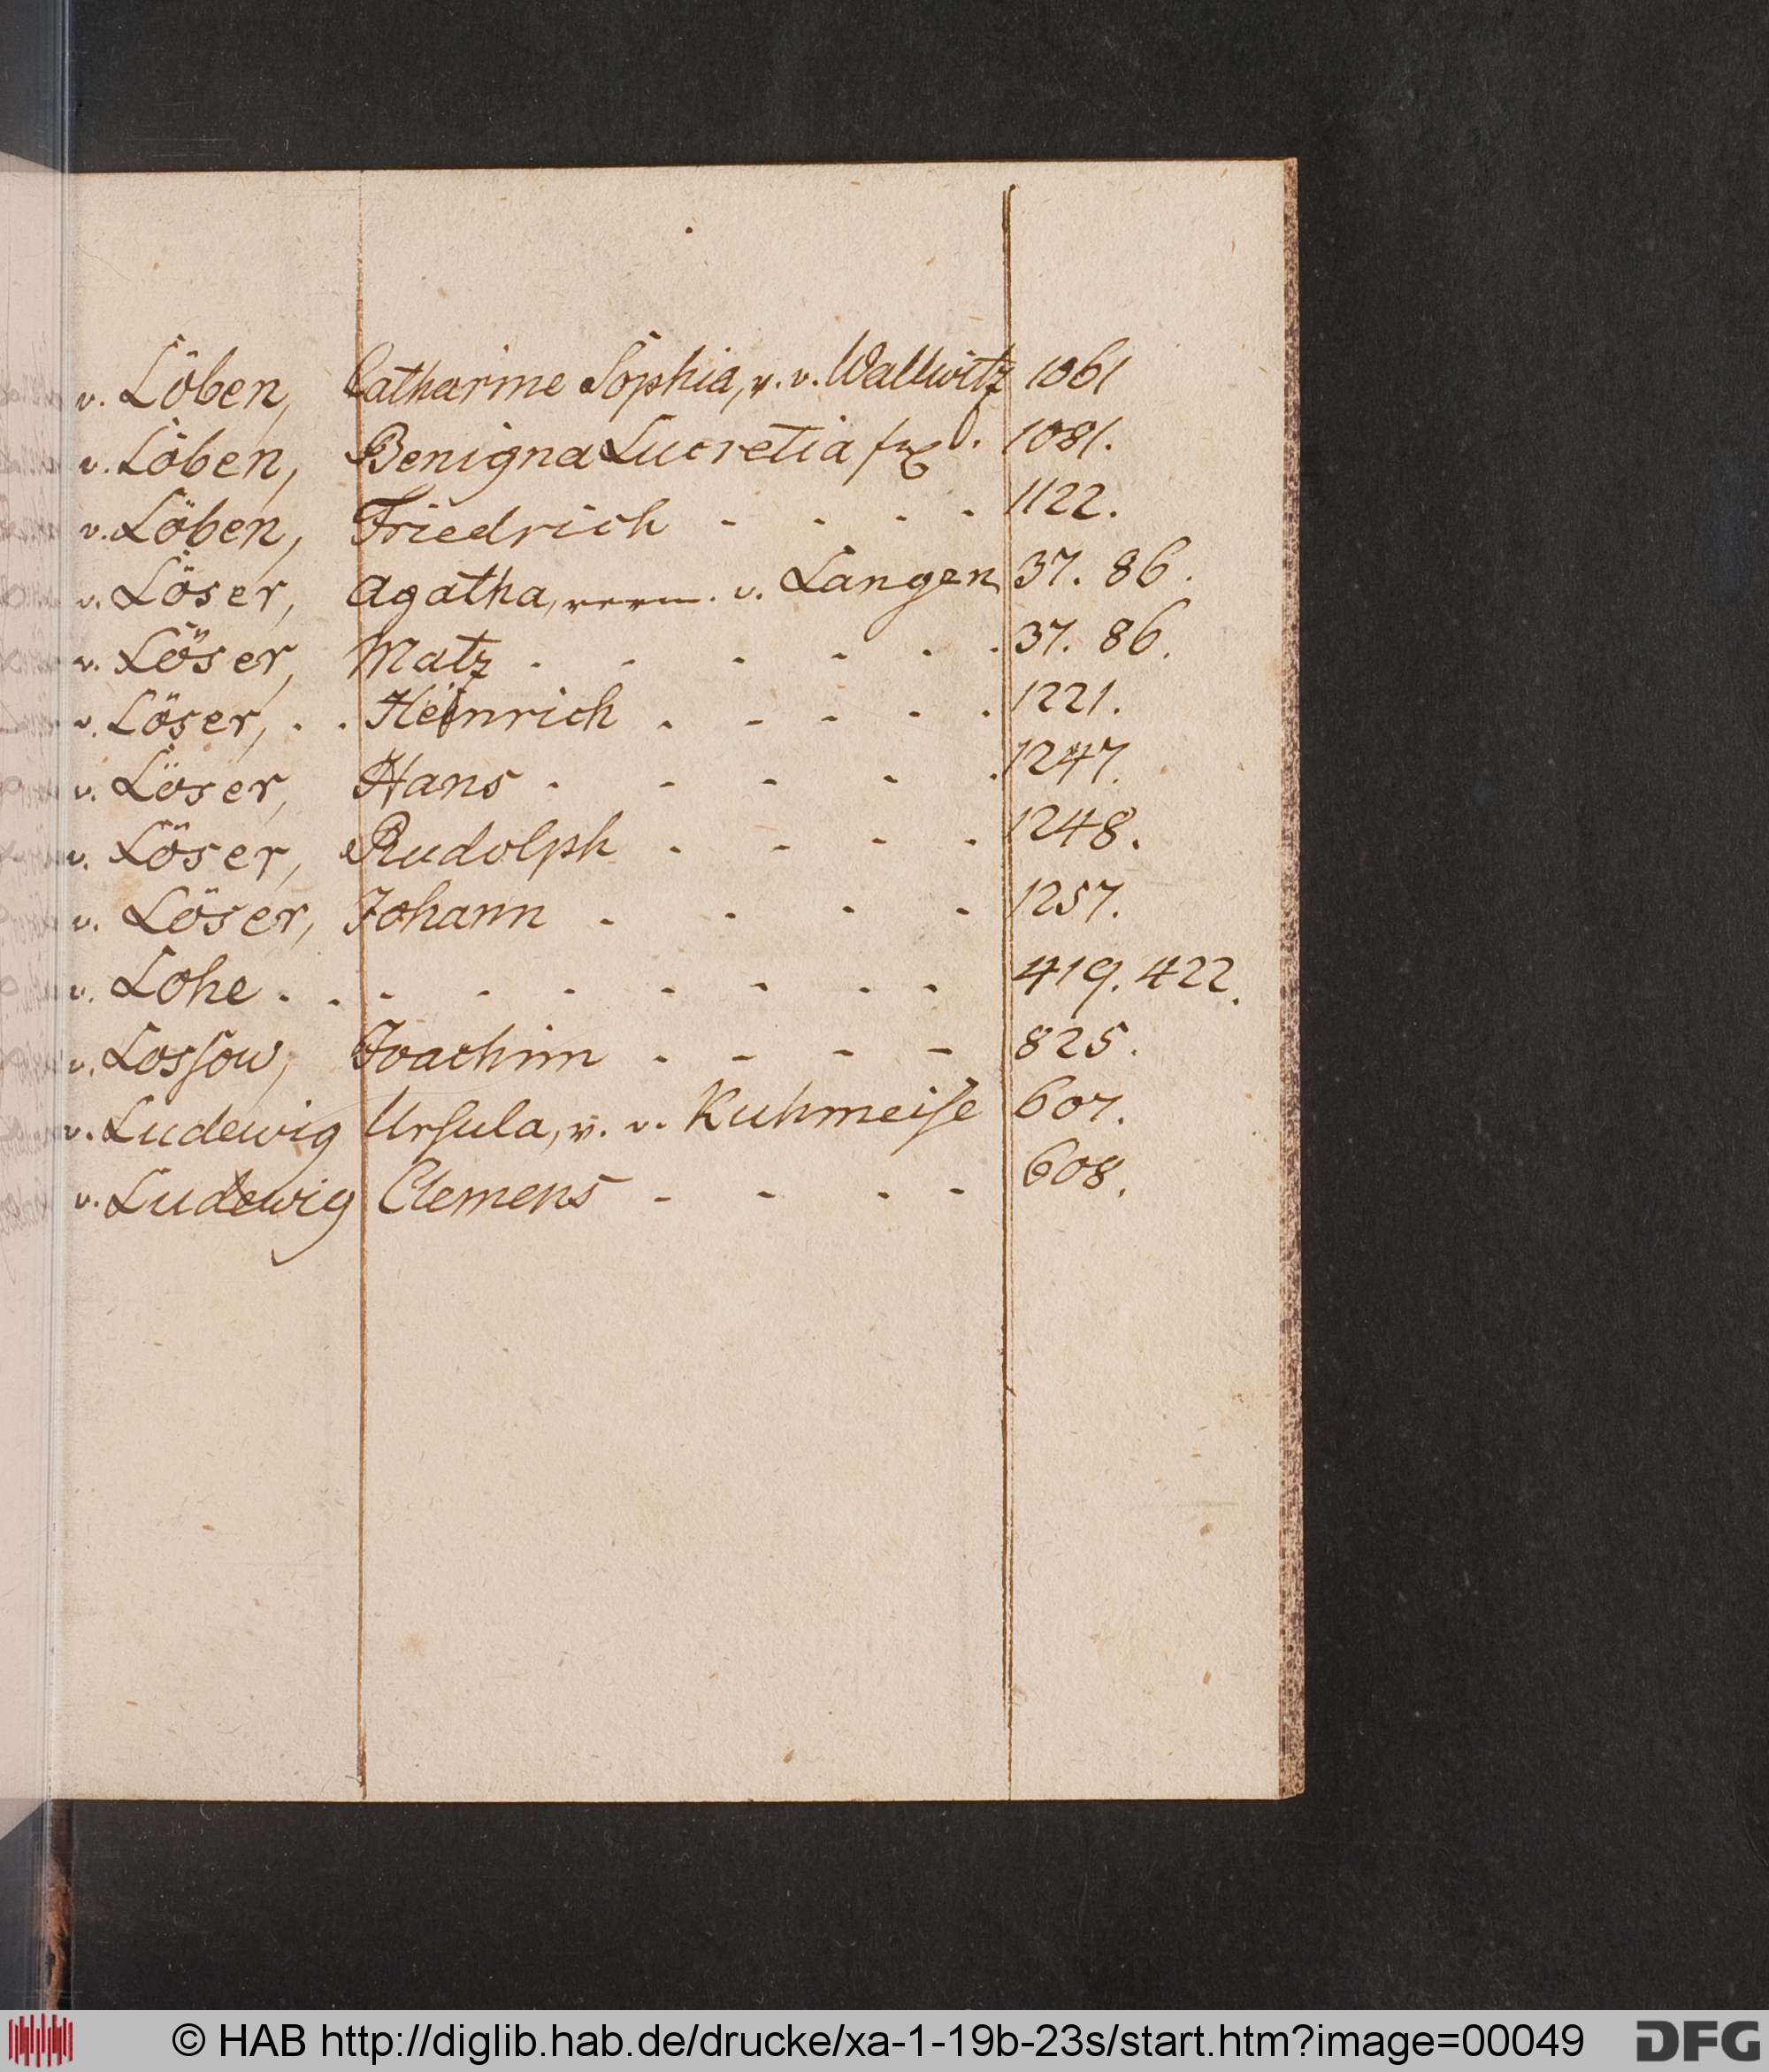 v. Löben, Catharine Sophia, v. v. Wallwitz 1061
v. Löben, Benigna Lucretia 1081.
v. Löben, Friedrich - - - - 1122.
v. Löser, Agatha, verm. v. Langen 37. 86.
v. Löser, Matz - - - - - - 37. 86.
v. Löser, . . Heinrich - - - - - 1221.
v. Löser, Hans - - - - - 1247.
v. Löser, Rudolph - - - - 1248.
v. Löser, Johann - - - - 1257.
v. Lohe . . - - - - - - - 419. 422.
v. Losſow, Joachim - - - - 825.
v. Ludewig Urſula, v. v. Kuhmeiſe 607.
v. Ludewig Clemens - - - - 608.
© HAB http://diglib.hab.de/drucke/xa-1-19b-23s/start.htm?image=00049 DFG